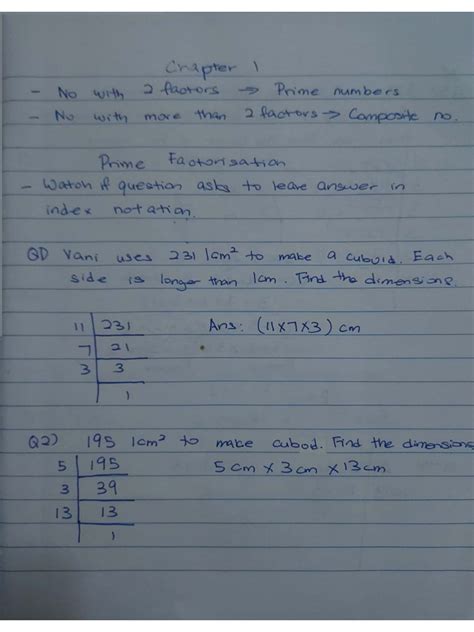 Chapter 1
- No with 2 factors → Prime numbers
- No with more than 2 factors → Composite no.
Prime Factorisation
- Watch if question asks to leave answer in
index notation.
Q1) Vani uses 231 1cm² to make a cuboid. Each
side is longer than 1cm. Find the dimensions.
11 | 231
7 | 21
3 | 3
1
Ans: (11x7x3) cm
Q2) 195 1cm² to make cubod. Find the dimensions
5 | 195
3 | 39
13 | 13
1
5cm x 3cm x 13cm